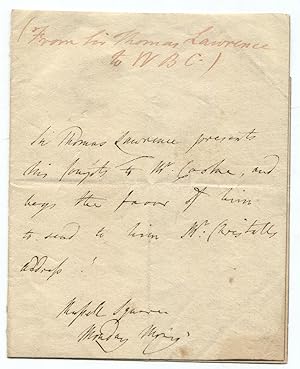 (From Sir Thomas Lawrence
to W B C.)
Sir Thomas Lawrence presents
his Compts to Mr. Cooke, and
begs the favor of him
to send to him Mr. Christall's
address!
Russell Square
Monday Morng